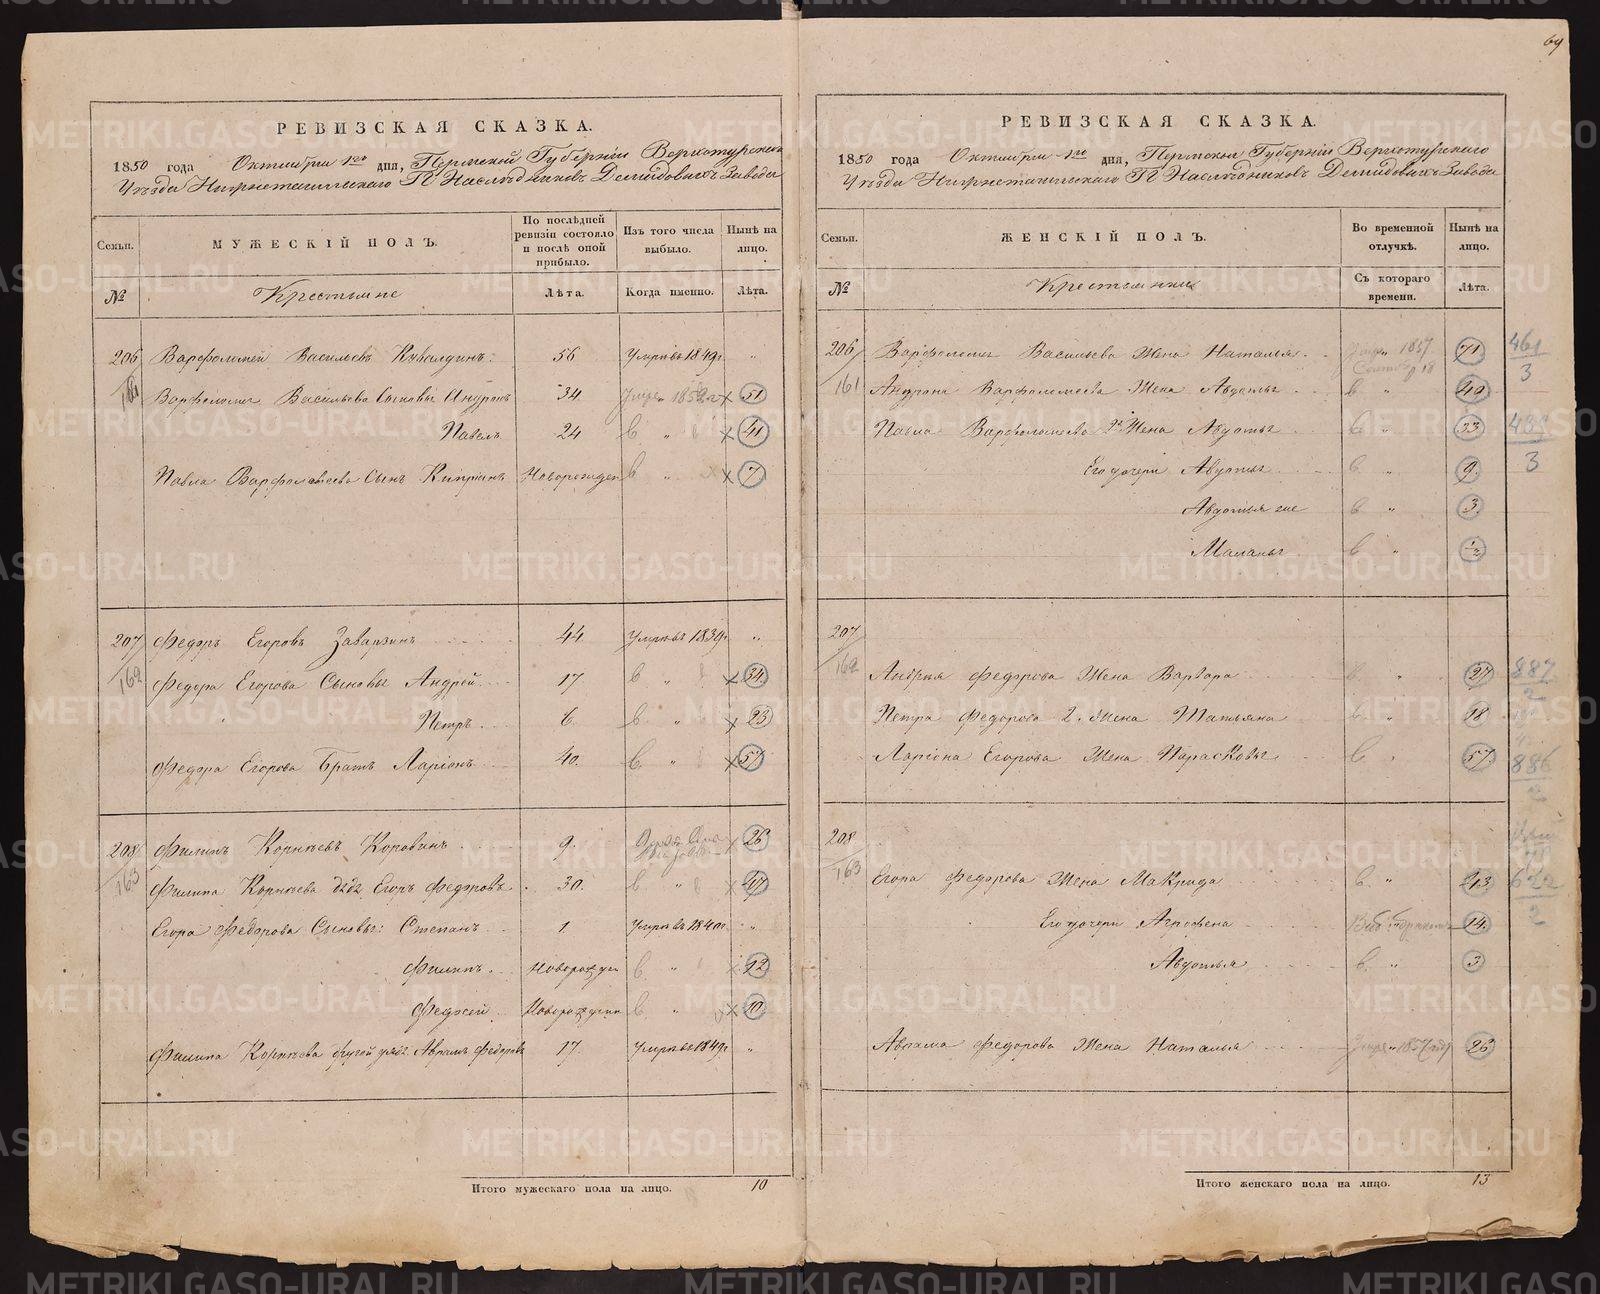 69
РЕВИЗСКАЯ СКАЗКА.
1850 года Октября 1го дня, Пермской Губерніи Верхотурскаго
Уѣзда Нижнетагильскаго Гг. Наслѣдниковъ Демидовыхъ Завода
Семьи.
МУЖЕСКІЙ ПОЛЪ.
По послѣдней ревизіи состояло и послѣ оной прибыло.
Изъ того числа выбыло.
Нынѣ на лицо.
№
Крестьяне
Лѣта.
Когда именно.
Лѣта.
206 Варфоломей Васильевъ Кувалдинъ: 56 умеръ въ 1849г. "
161 Варфоломея Васильева Сыновья Андронъ 34 51
Павелъ 24 в " 41
Павла Варфоломеева Сынъ Кипріянъ Новорожден в " 7
207 Федоръ Егоровъ Заварзинъ 44 умеръ въ 1839г. "
162 Федора Егорова Сыновья Андрей 17 в " 34
Петръ 6 в " 23
Федора Егорова Братъ Ларіонъ 40. в " 57
208 Филипъ Корнѣевъ Коровинъ 9. 26
163 Филипа Корнѣева дядя Егоръ Федоровъ 30. в " 47
Егора Федорова Сыновья: Степанъ 1. умеръ въ 1840г. "
Филипъ Новорожден в " 12
Федосей Новорожденн в " 10
Филипа Корнѣева другой дядя Аврамъ Федоровъ 17. умеръ въ 1849г "
Итого мужескаго пола на лицо. 10
РЕВИЗСКАЯ СКАЗКА.
1850 года Октября 1го дня, Пермской Губерніи Верхотурскаго
Уѣзда Нижнетагильскаго Гг. Наслѣдниковъ Демидовыхъ Завода
Семьи.
ЖЕНСКІЙ ПОЛЪ.
Во временной отлучкѣ.
Нынѣ на лицо.
№
Крестьянки
Съ котораго времени.
Лѣта.
206 Варфоломея Васильева Жена Наталья 1857 71 461/3
161 Андрона Варфоломеева Жена Авдотья в " 40
Павла Варфоломеева 2я Жена Авдотья в " 33
3
Его дочери Авдотья в " 9.
Авдотья же в " 3.
Маланья в " 1/2
207
162 Андрея Федорова Жена Варвара в " 27 887/2
Петра Федорова 2. Жена Татьяна в " 18
Ларіона Егорова Жена Парасковья в " 57 886
208
163 Егора Федорова Жена Макрида в " 43 622/2
Его дочери Аграфена 14.
Авдотья в " 3
Аврама Федорова Жена Наталья 26
Итого женскаго пола на лицо. 13
METRIKI.GASO-URAL.RU